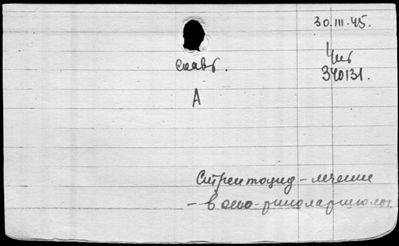 30.III.45.
славб.
340131.
А
Стрептоцид - лечение
- в ото-риноларинголог